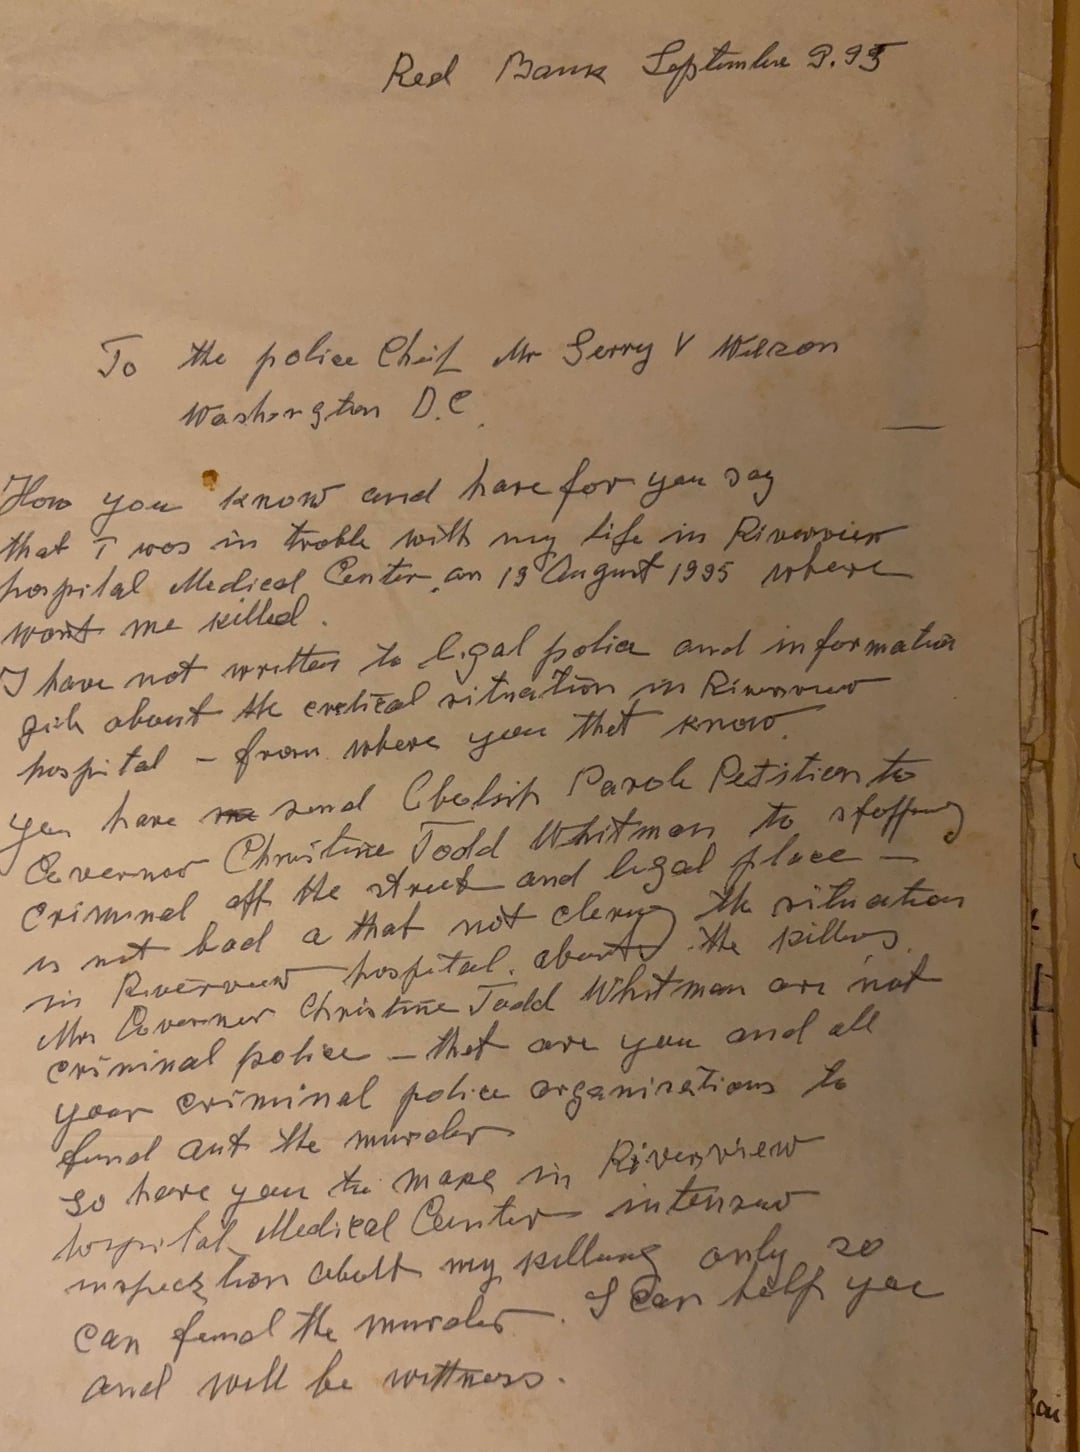 Red Bank Septembre 9.95
To the police Chif Mr Gerry V Wilson
Washington D.C.
How you know and have for you say
that I was in troble with my life in Riverview
hospital Medical Center, on 19 August 1995 where
want me killed.
I have not written to legal police and information
about the critical situation in Riverview
hospital - from where you that know.
you have send Abolish Parole Petition to
Governor Christine Todd Whitman to stopping
criminal off the street and legal place -
is not bad a that not the situation
in Riverview hospital. about the killers.
Mrs Governer Christine Todd Whitman are not
criminal police - that are you and all
your criminal police organisations to
find aut the murder
So have you to make in Riverview
hospital Medical Center intensiv
inspection abalt my killing only so
can find the murder. I can help you
and will be wittness.